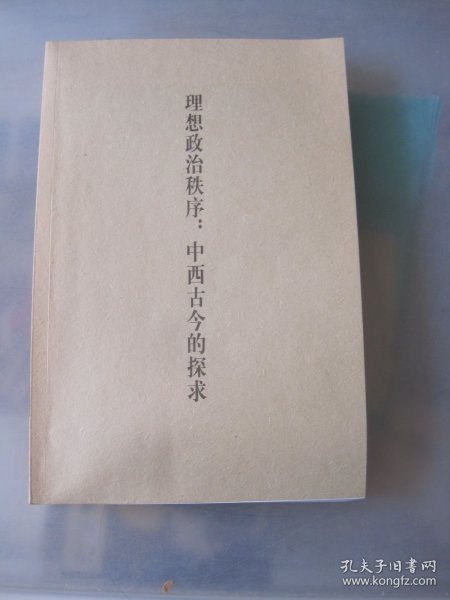 理想政治秩序：中西古今的探求
孔夫子旧书网
www.kongfz.com